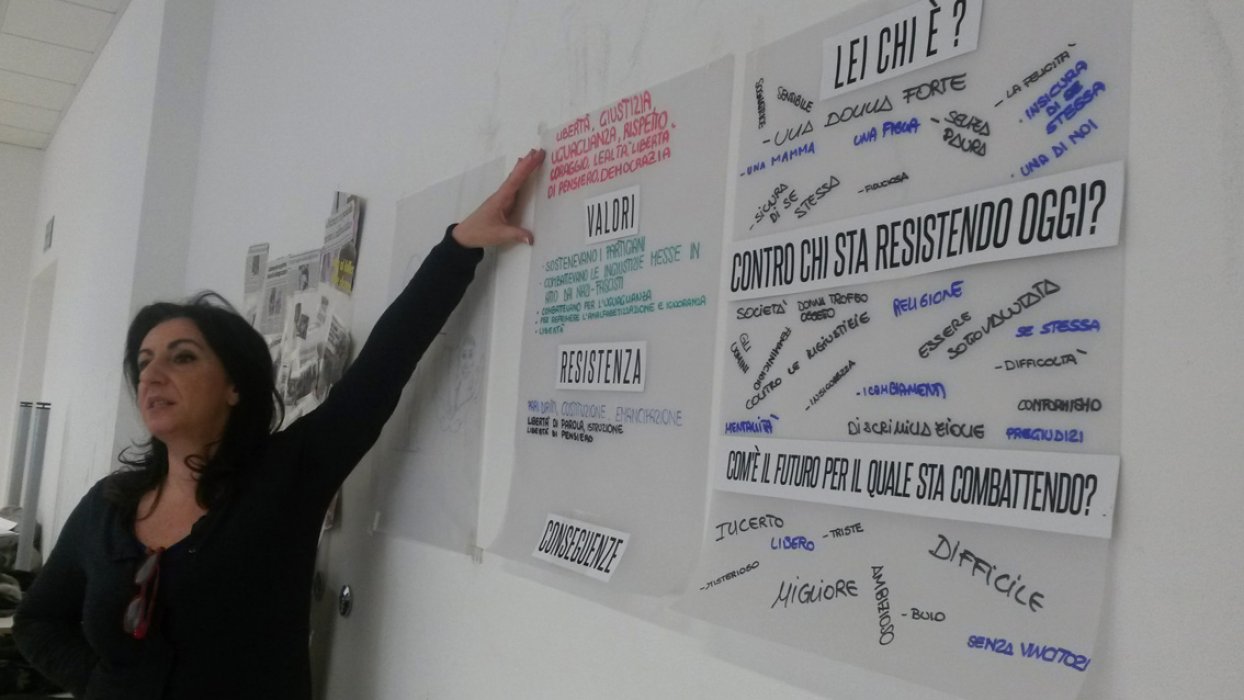 LIBERTÀ, GIUSTIZIA,
UGUAGLIANZA, RISPETTO
CORAGGIO, LEALTÀ LIBERTÀ
DI PENSIERO, DEMOCRAZIA
VALORI
- SOSTENEVANO I PARTIGIANI
- COMBATTEVANO LE INGIUSTIZIE MESSE IN
ATTO DAI NAZI-FASCISTI
- COMBATTEVANO PER L'UGUAGLIANZA
- PER REPRIMERE L'ANALFABETIZZAZIONE E IGNORANZA
- LIBERTÀ
RESISTENZA
PARI DIRITTI, COSTITUZIONE, EMANCIPAZIONE
LIBERTÀ DI PAROLA, ISTRUZIONE
LIBERTÀ DI PENSIERO
CONSEGUENZE
LEI CHI È?
SENSIBILE
- UNA DONNA FORTE
- LA FELICITÀ
- INSICURA
DI SE
STESSA
- UNA MAMMA
UNA FIGLIA
- SENZA
PAURA
- UNA DI NOI
- SICURA
DI SE
STESSA
- FIDUCIOSA
CONTRO CHI STA RESISTENDO OGGI?
SOCIETÀ
DONNA TROFEO
OGGETO
RELIGIONE
ESSERE
SOTTOVALUTATA
SE STESSA
GLI
UOMINI
FEMMINICIDIO
CONTRO LE INGIUSTIZIE
- INSICUREZZA
- I CAMBIAMENTI
- DIFFICOLTÀ
CONFORMISMO
MENTALITÀ
DISCRIMINAZIONE
PREGIUDIZI
COM'È IL FUTURO PER IL QUALE STA COMBATTENDO?
INCERTO
LIBERO
- TRISTE
DIFFICILE
- MISTERIOSO
MIGLIORE
AMBIZIOSO
- BUIO
SENZA VINCITORI